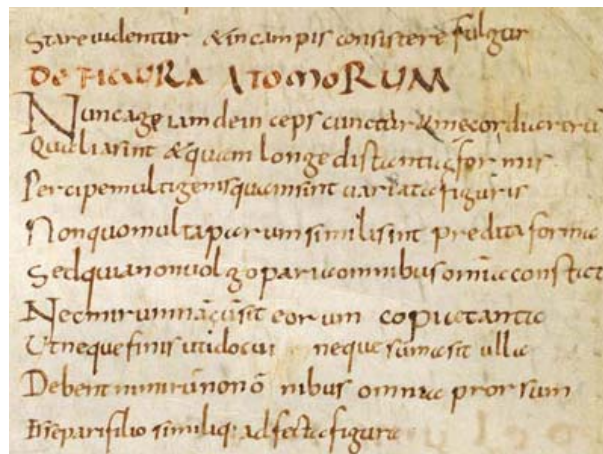 Stare uidentur & in campis consistere fulgur
DE FIGURA ATOMORUM
Nunc age iam dein ceps
Qualia sint & quam longe distantia formis
Percipe multigenis quam sint uariata figuris
Non quo multa parum simili sint predita forma
Sed quia non uolgo paria omnibus omnia constant
Nec mirum nā cū sit eorum copia tanta
Ut neque finis uti docui neque sūma sit ulla
Debent nimirū non ō nibus omnia prorsum
Esse pari filo similiq: adfecta figura